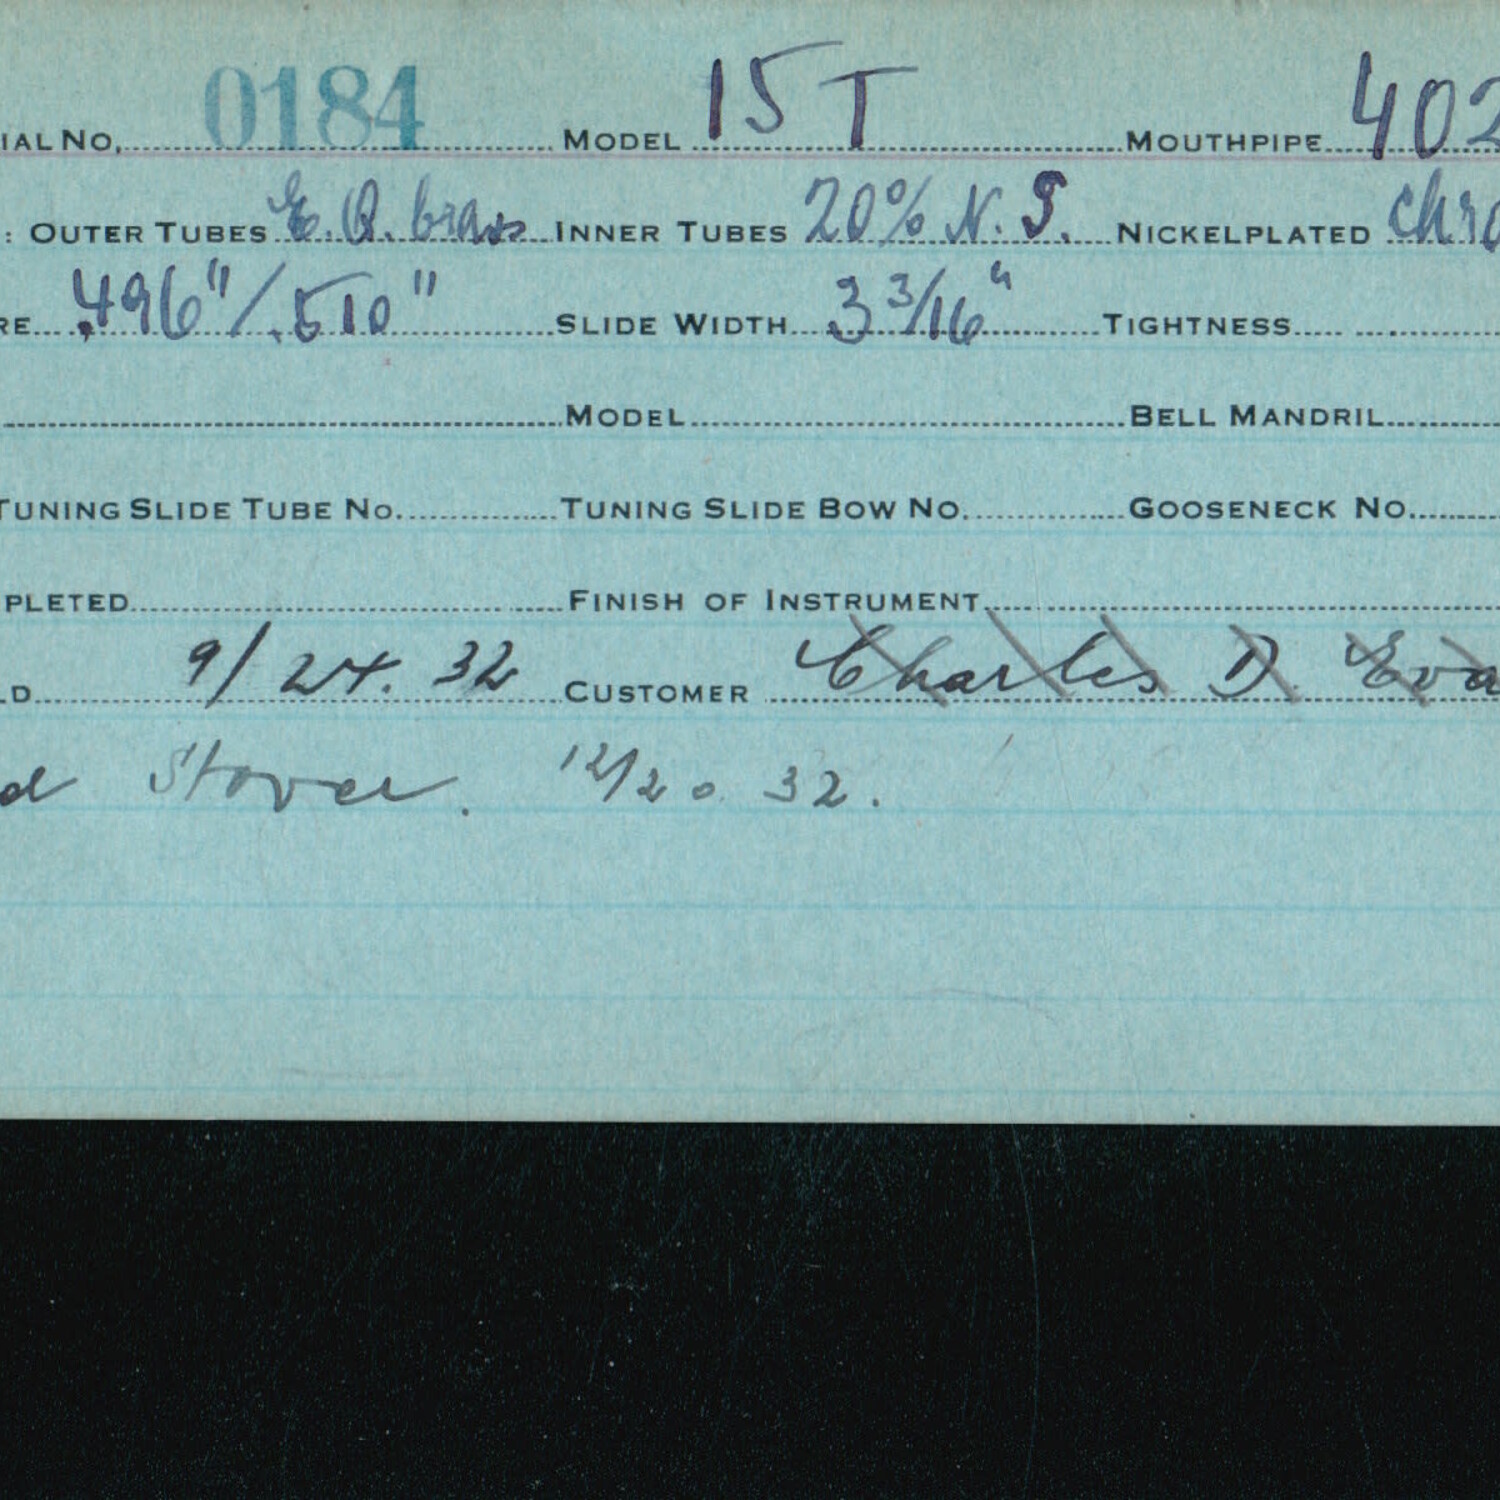 IAL NO. 0184 MODEL 15 T MOUTHPIPE 402
: OUTER TUBES E.R. brass INNER TUBES 20% N. S. NICKELPLATED Chro
RE .496"/.510" SLIDE WIDTH 3 3/16" TIGHTNESS
MODEL BELL MANDRIL
TUNING SLIDE TUBE NO. TUNING SLIDE BOW NO. GOOSENECK NO.
PLETED FINISH OF INSTRUMENT
LD 9/24. 32 CUSTOMER Charles D. Eva
d Stover. 12/20 32.